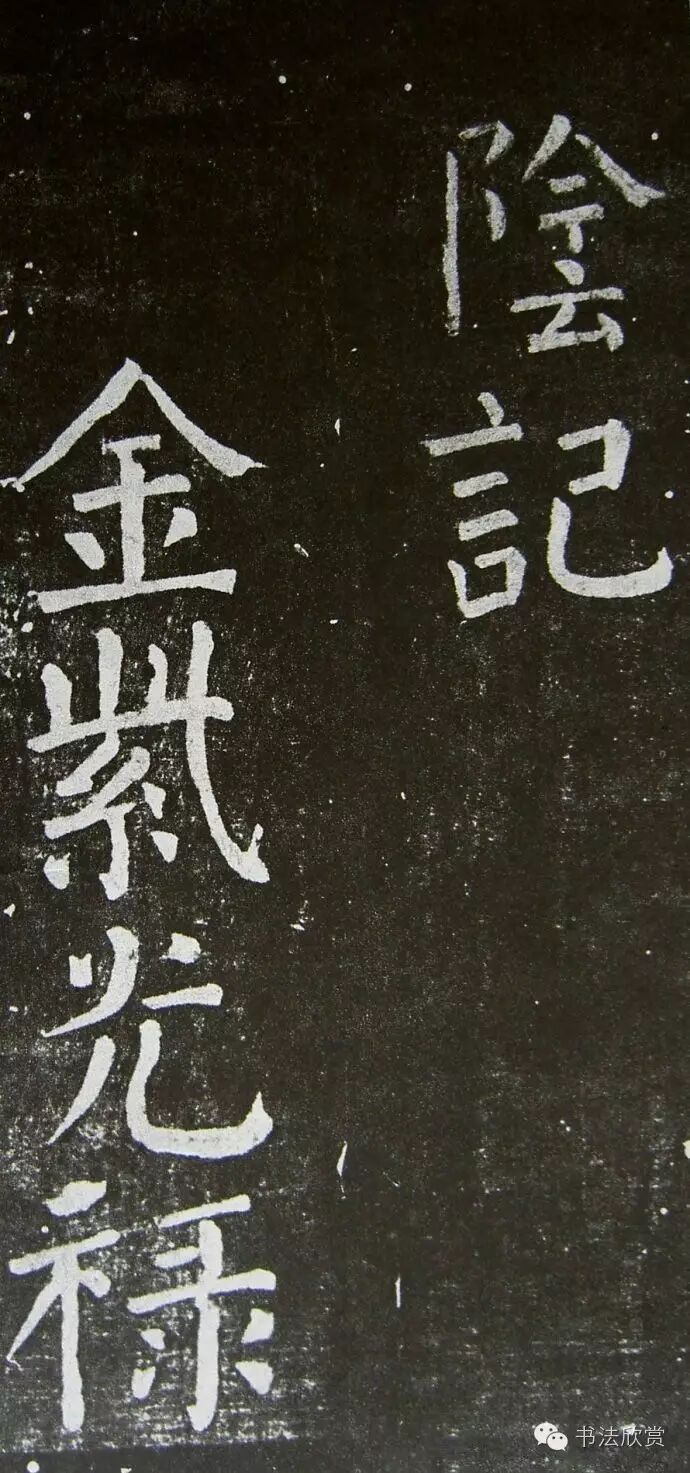 陰記
金紫光祿
书法欣赏